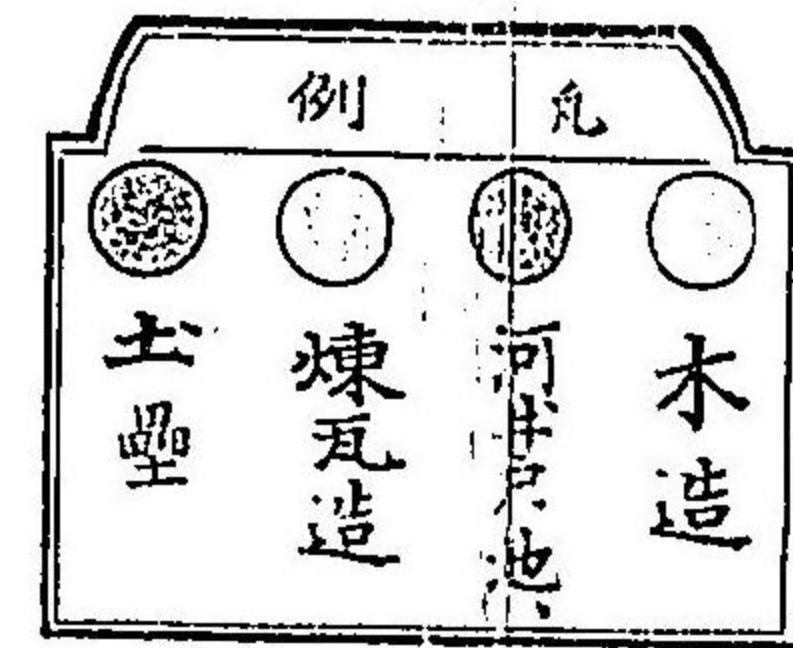 凡例
木造
河井戸池
煉瓦造
土塁